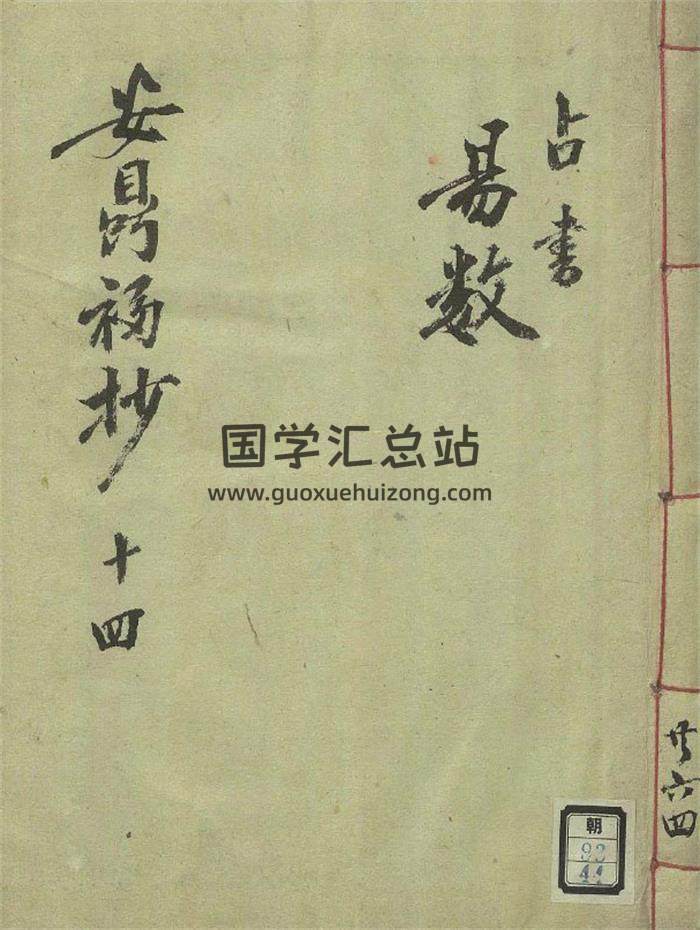 占書
易数
安鼎福抄 十四
共六四
国学汇总站
www.guoxuehuizong.com
朝
44